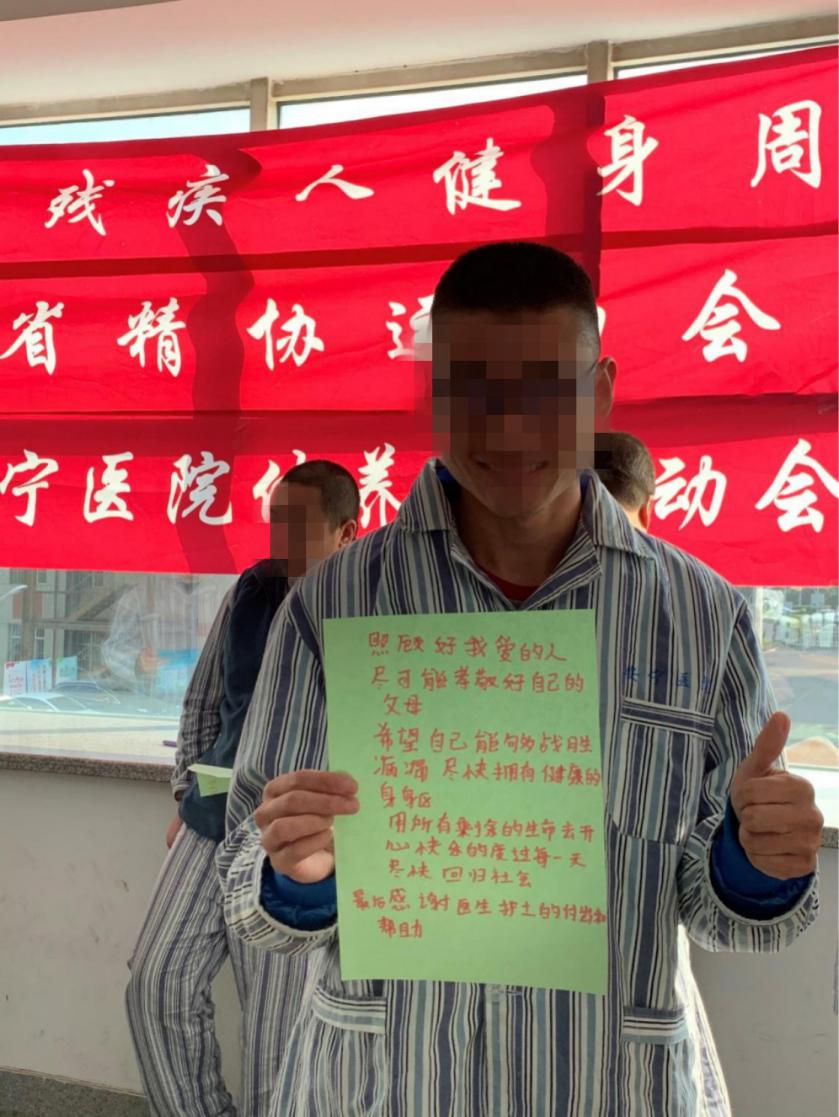 残疾人健身周
省精协 会
宁医院 养 动会
照顾好我爱的人
尽可能孝敬好自己的
父母
希望自己能够战胜
尽快拥有健康的
身躯
用所有剩余的生命去开
心快乐的度过每一天
尽快回归社会
最后感谢医生护士的付出和
帮助
宁医